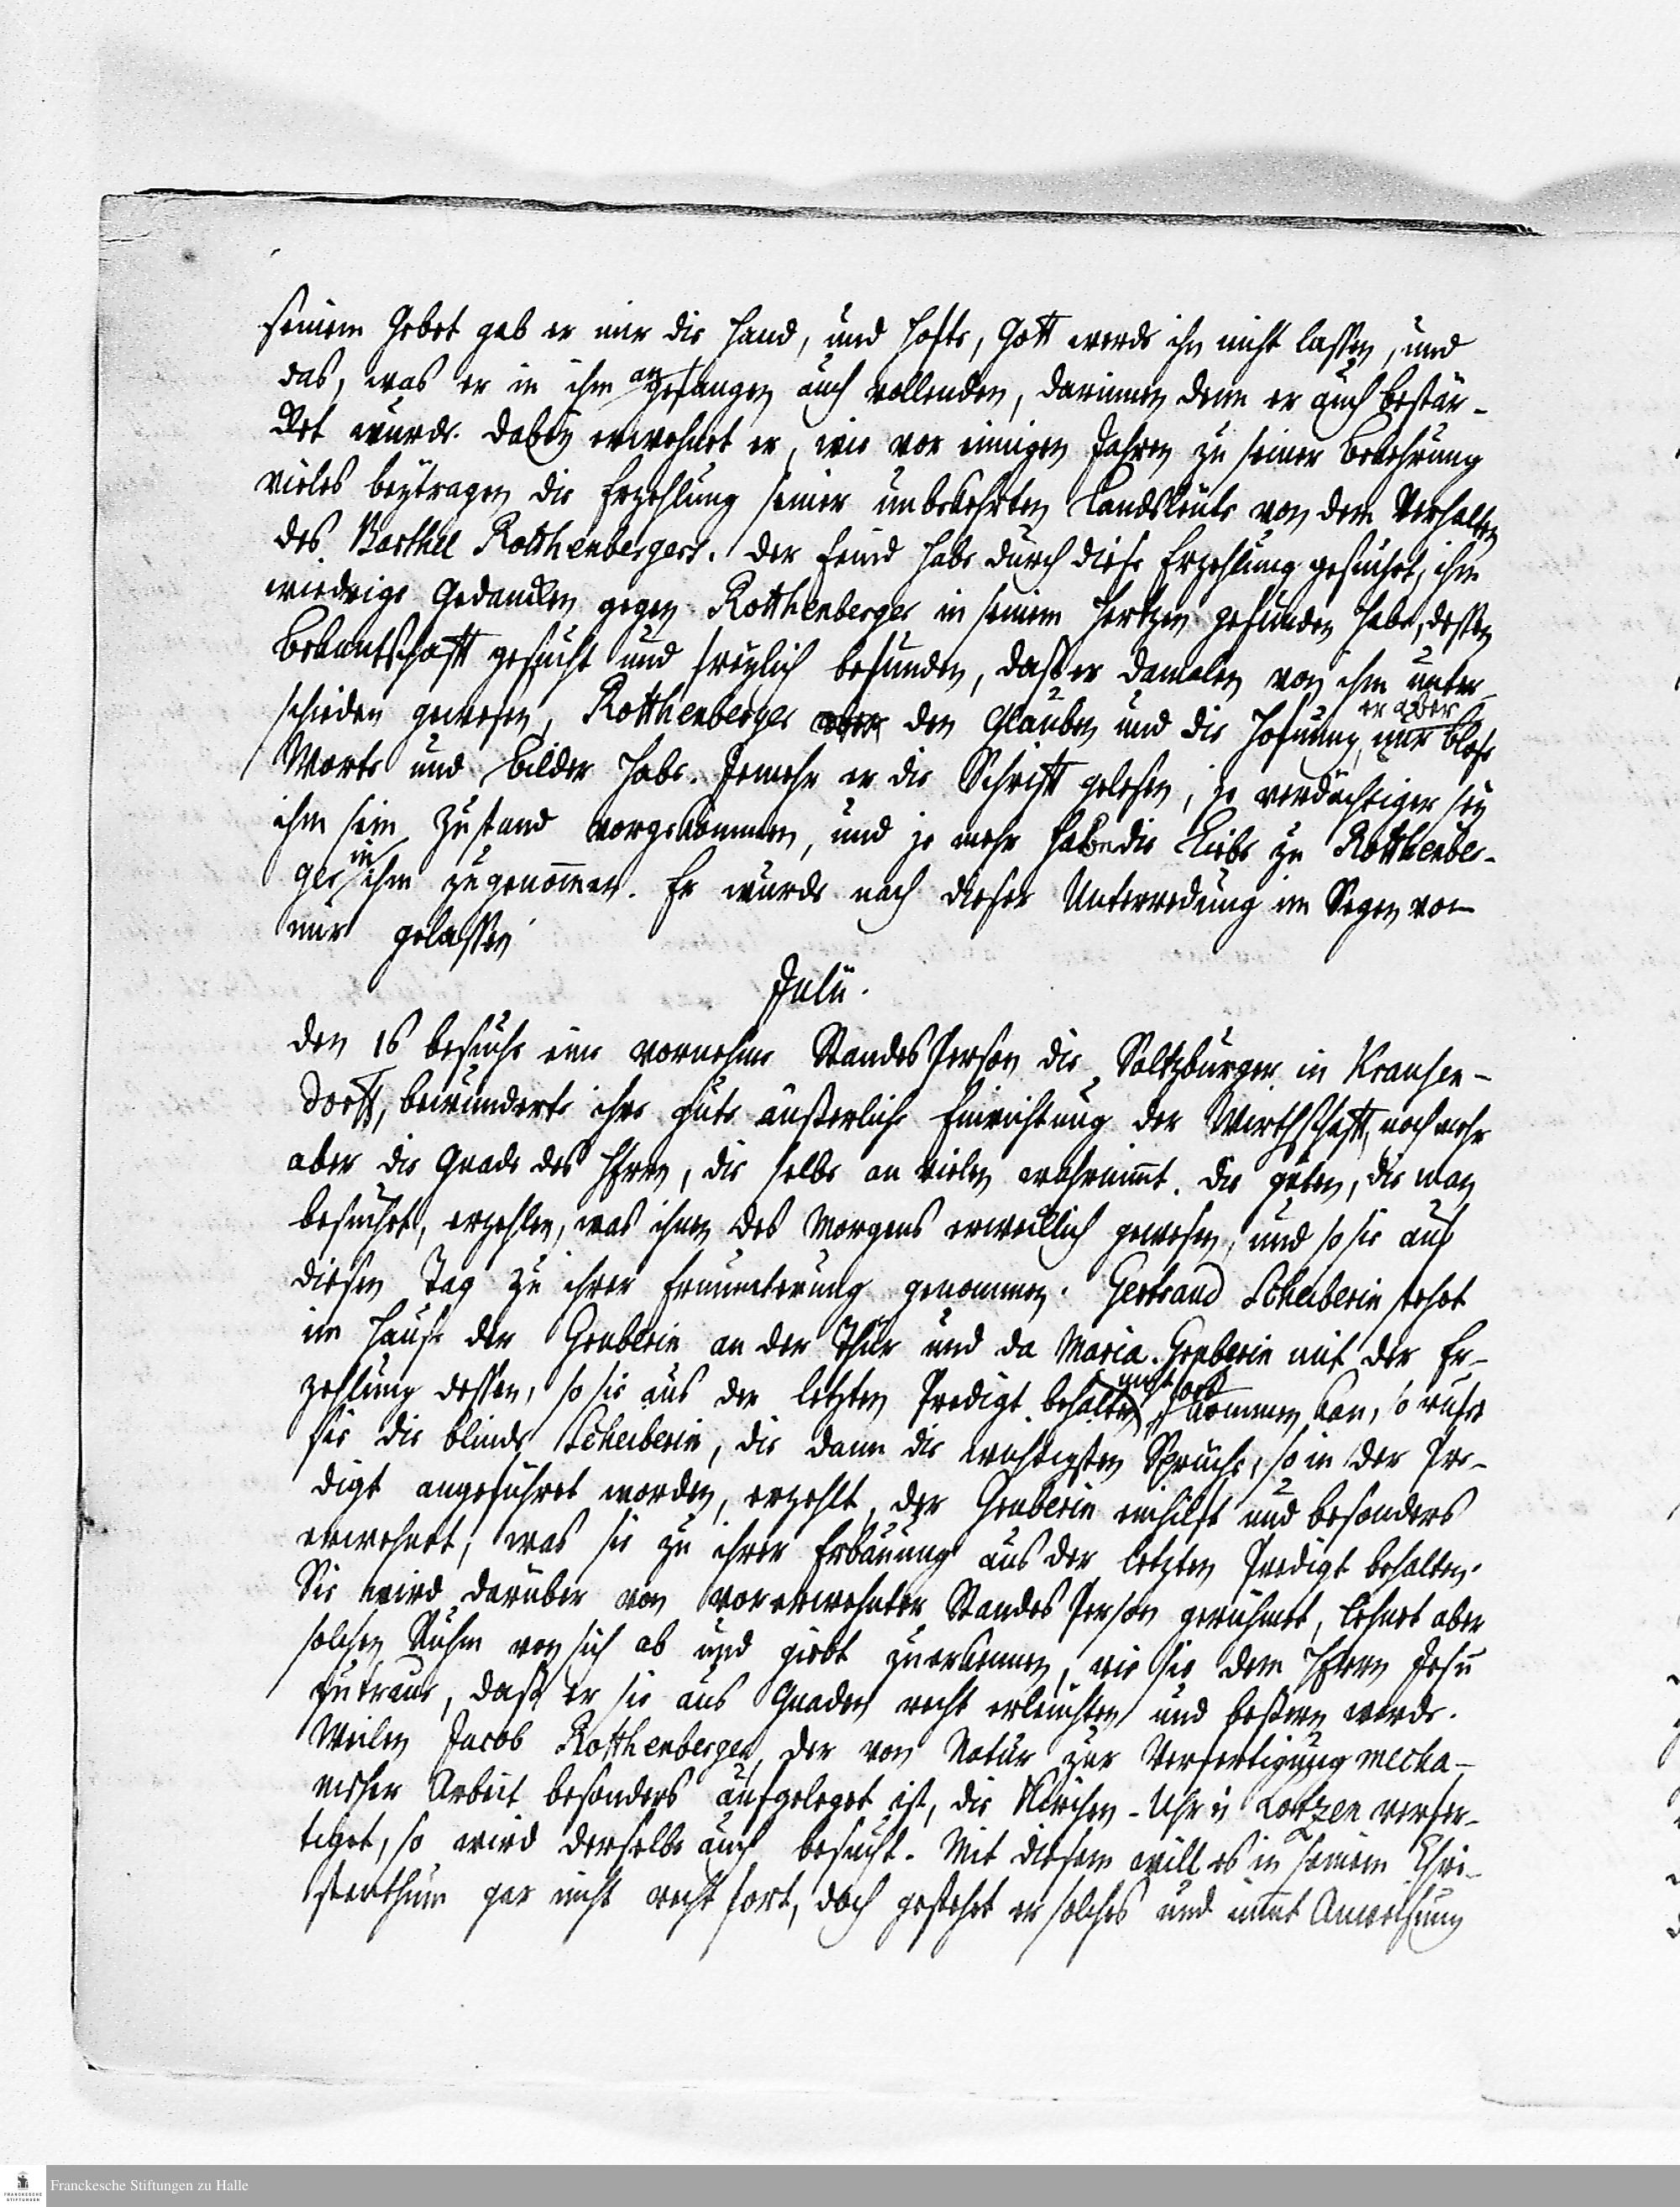 seinem Gebet gab er mir die Hand, und hofte, Gott werde ihn nicht lassen, und
das, was er in ihm angefangen auch vollenden, darinnen denn er auch bestär-
cket wurde. Dabey erwehnet er, wie vor einigen Jahren zu seiner Bekehrung
vieles beygetragen die Erzehlung seiner unbekehrten Landsleute von dem Verhalten
des Barthel Rotthenbergers. Der Feind habe durch diese Erzehlung gesuchet, ihm
wiedrige Gedancken gegen Rotthenberger in seinem Hertzen gefunden habe, dessen
Bekantschafft gesucht und freylich befunden, daß er damalen von ihm unter-
schieden gewesen, Rotthenberger den Glauben und die Hofnung, er aber nur blose
Worte und Bilder habe. Jemehr er die Schrifft gelesen, je verdächtiger sey
ihm sein Zustand vorgekommen, und je mehr habe die Liebe zu Rotthenber-
ger in ihm zugenommen. Er wurde nach dieser Unterredung im Segen von
mir gelassen
Julii.
Den 16 besuchte eine vornehme Standes Person die Saltzburger in Krausen-
dorff, bewunderte ihre gute äußerliche Einrichtung der Wirthschafft, noch mehr
aber die Gnade des HErrn, die selbe an vielen wahrnimmt. Die guten, die man
besuchet, erzehlen, was ihnen des Morgens erwecklich gewesen, und so sie auf
diesen Tag zu ihrer Ermunterung genommen. Gertraud Scheiberin stehet
im Hause der Gruberin an der Thür und da Maria Gruberin mit der Er-
zehlung dessen, so sie aus der letzten Predigt behalten, nicht fort kommen kan, so rufet
sie die blinde Scheiberin, die dann die wichtigsten Sprüche, so in der Pre-
digt angeführet worden, erzehlt, der Gruberin einhilft und besonders
erwehnet, was sie zu ihrer Erbauung aus der letzten Predigt behalten.
Sie wird darüber von vorerwehnter Standes Person gerühmet, lehnet aber
solchen Ruhm von sich ab und giebt zuerkennen, wie sie dem HErrn Jesu
zutraue, daß er sie aus Gnaden recht erleuchten und bessern werde.
Weilen Jacob Rotthenberger, der von Natur zur Verfertigung mecha-
nischer Arbeit besonders aufgeleget ist, die Kirchen-Uhr in Lötzen verfer-
tiget, so wird derselbe auch besucht. Mit diesem will es in seinem Chri-
stenthum gar nicht recht fort, doch gestehet er solches und nimmt Anweisung
Franckesche Stiftungen zu Halle